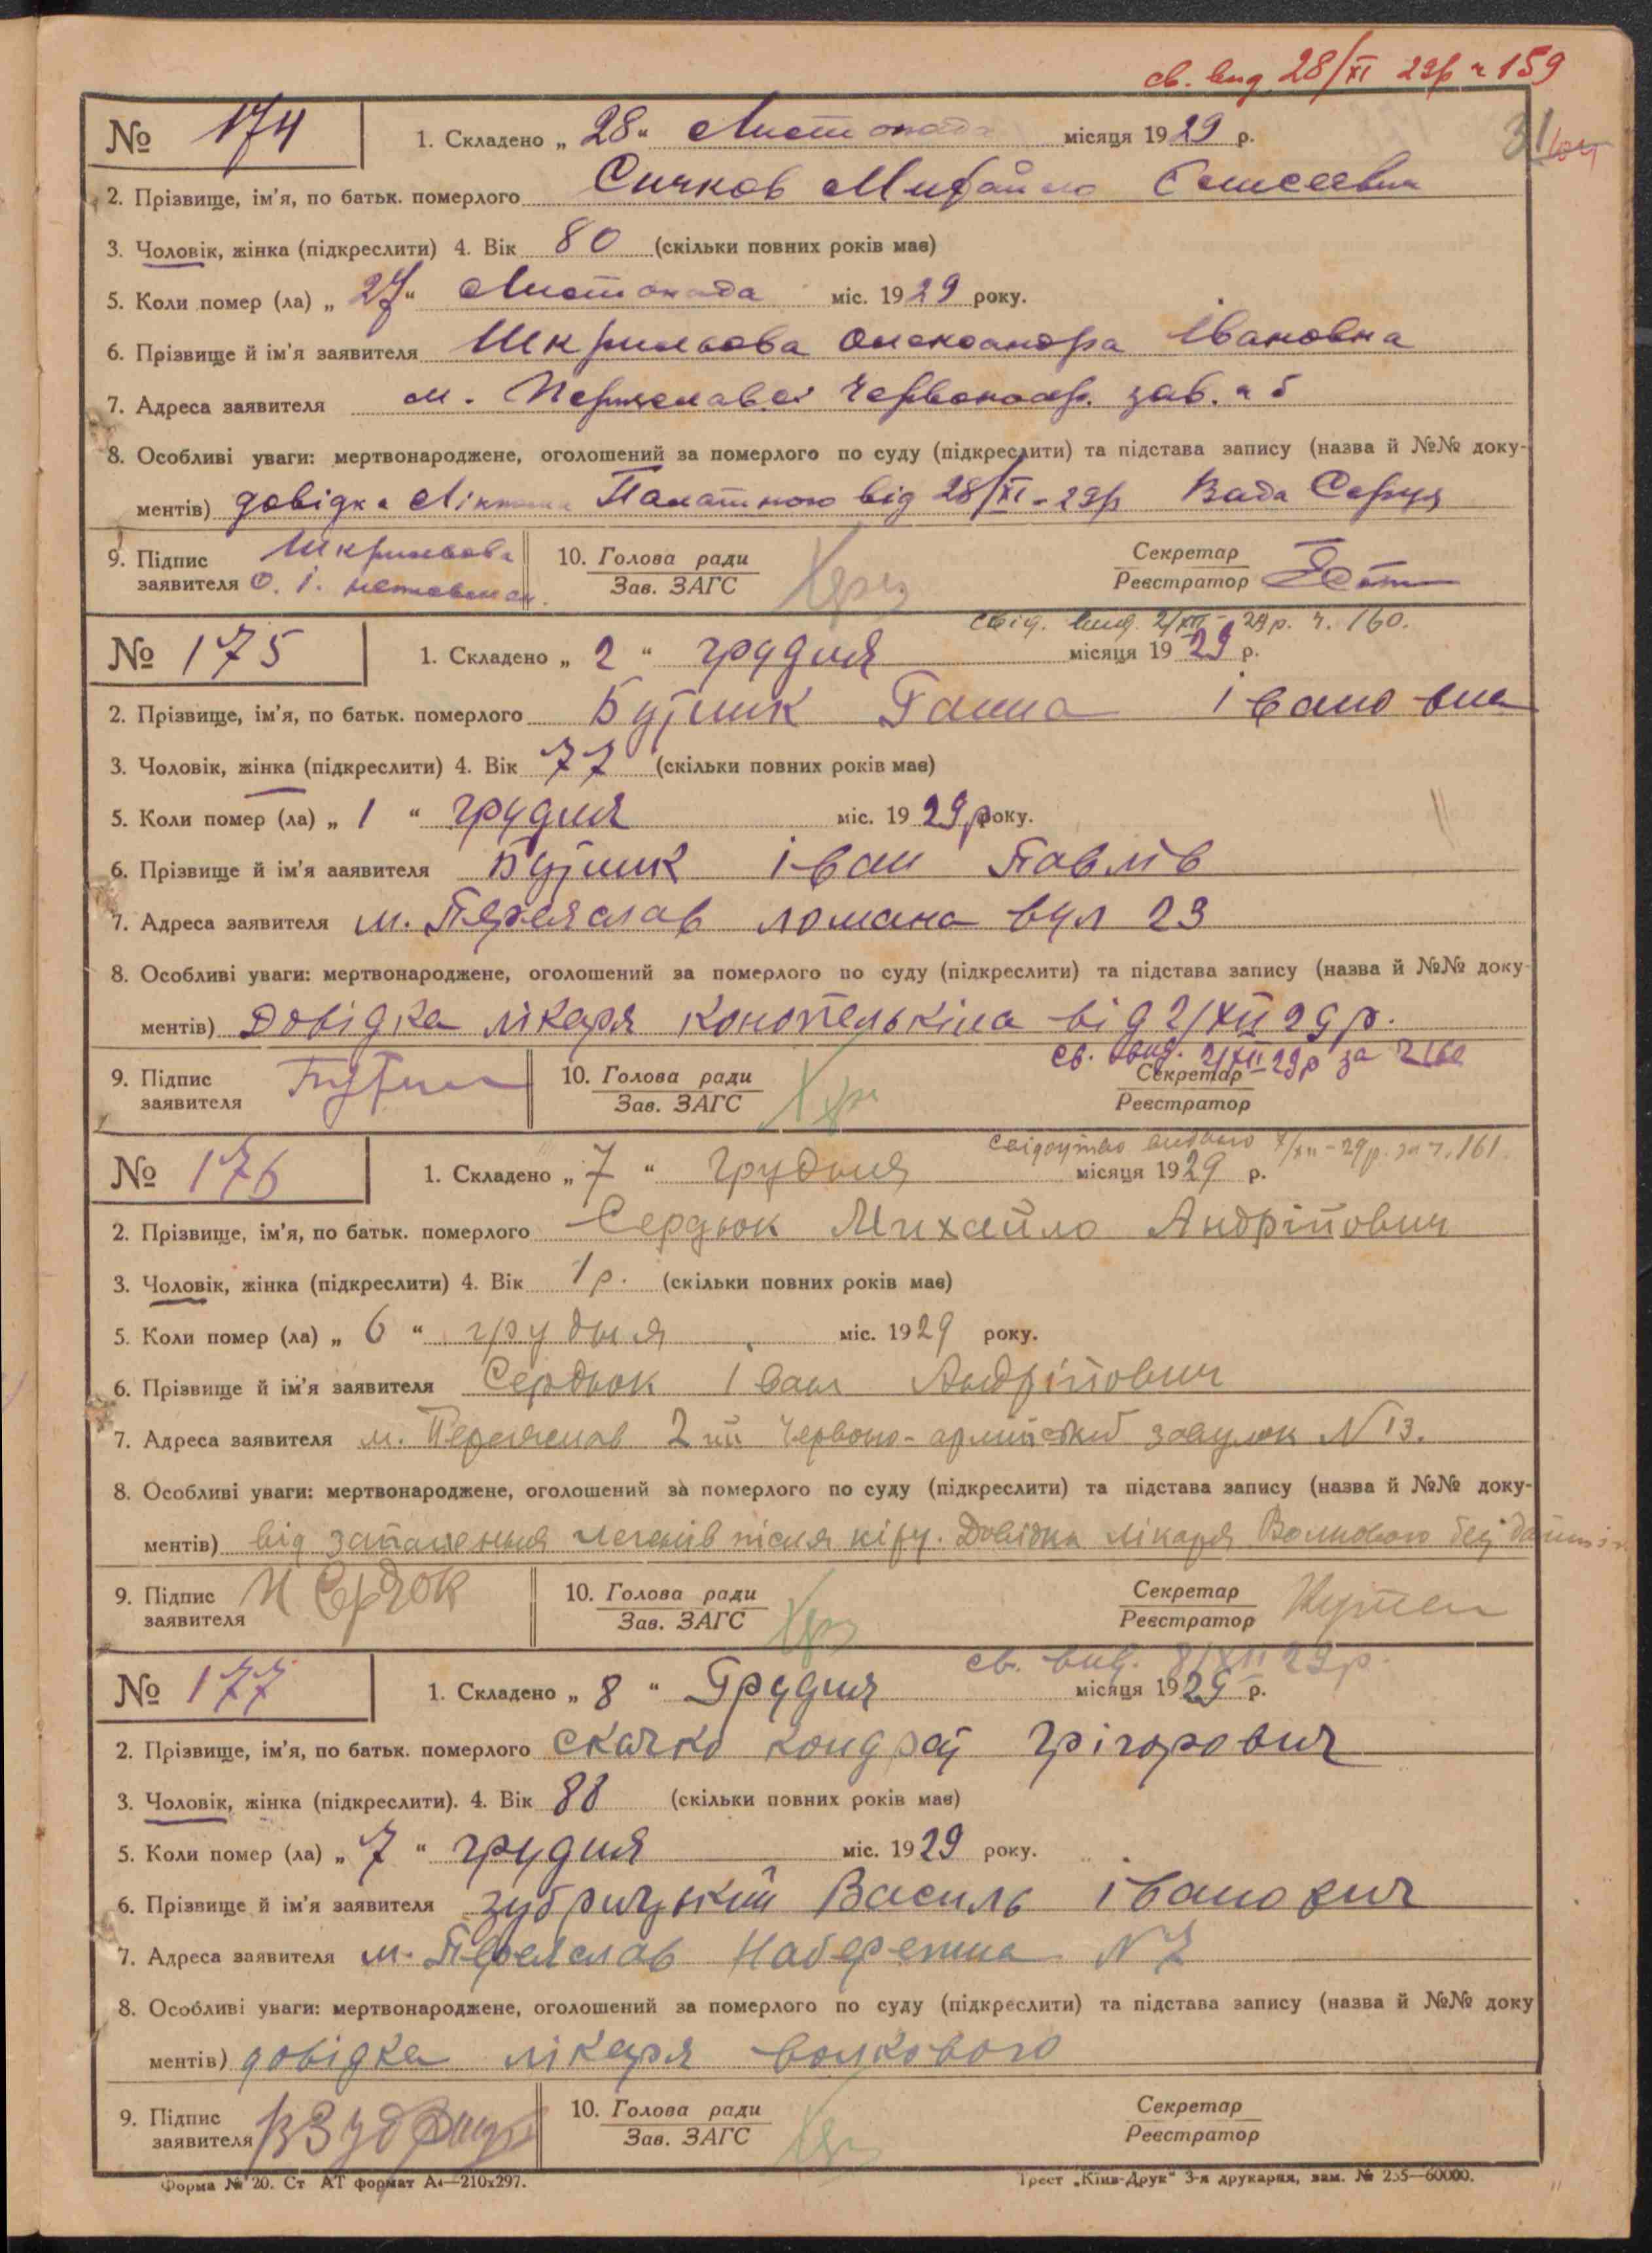 св. вид. 28/XI 29р ч 159
№ 174 1. Складено „ 28 “ Листопада місяця 1929 р.
31
2. Прізвище, ім'я, по батьк. померлого Сичков Михайло Єлисеевич
3. Чоловік, жінка (підкреслити) 4. Вік 80 (скільки повних років має)
5. Коли помер (ла) „ 27 “ Листопада міс. 1929 року.
6. Прізвище й ім'я заявителя Шкрильова Олександра Івановна
7. Адреса заявителя м. Переяслав Червоноар. зав. ч 5
8. Особливі уваги: мертвонароджене, оголошений за померлого по суду (підкреслити) та підстава запису (назва й №№ доку-
ментів) довідка від 28/XI-29р Вада Серця
9. Підпис заявителя Шкрильова О. І. 10. Голова ради Зав. ЗАГС Секретар Реєстратор
свід. вид. 2/XII-29р. ч. 160.
№ 175 1. Складено „ 2 “ грудня місяця 1929 р.
2. Прізвище, ім'я, по батьк. померлого Бутник Ганна івановна
3. Чоловік, жінка (підкреслити) 4. Вік 77 (скільки повних років має)
5. Коли помер (ла) „ 1 “ грудня міс. 1929 року.
6. Прізвище й ім'я заявителя Бутник іван Павлів
7. Адреса заявителя м. Переяслав ломана вул 23
8. Особливі уваги: мертвонароджене, оголошений за померлого по суду (підкреслити) та підстава запису (назва й №№ доку-
ментів) Довідка лікаря конопелькіна від 2/XII 29р.
св. вид. 2/XII 29р за ч 160
9. Підпис заявителя Бутник 10. Голова ради Зав. ЗАГС Секретар Реєстратор
Свідоцтво видано 7/XII-29р. за ч. 161.
№ 176 1. Складено „ 7 “ грудня місяця 1929 р.
2. Прізвище, ім'я, по батьк. померлого Сердюк Михайло Андрійович
3. Чоловік, жінка (підкреслити) 4. Вік 1 р. (скільки повних років має)
5. Коли помер (ла) „ 6 “ грудня міс. 1929 року.
6. Прізвище й ім'я заявителя Сердюк Іван Андрійович
7. Адреса заявителя м. Переяслав 2ий Червоно-армійський завулок N 13.
8. Особливі уваги: мертвонароджене, оголошений за померлого по суду (підкреслити) та підстава запису (назва й №№ доку-
ментів) від запалення легенів після кіру. Довідка лікаря Волкового без
9. Підпис заявителя И Сердюк 10. Голова ради Зав. ЗАГС Секретар Реєстратор
св. вид. 8/XII 29р.
№ 177 1. Складено „ 8 “ Грудня місяця 1929 р.
2. Прізвище, ім'я, по батьк. померлого Скачко Кондрат Грігорович
3. Чоловік, жінка (підкреслити). 4. Вік 88 (скільки повних років має)
5. Коли помер (ла) „ 7 “ грудня міс. 1929 року.
6. Прізвище й ім'я заявителя Зубрицький Василь іванович
7. Адреса заявителя м. Переяслав Набережна N 7
8. Особливі уваги: мертвонароджене, оголошений за померлого по суду (підкреслити) та підстава запису (назва й №№ доку
ментів) довідка лікаря волкового
9. Підпис заявителя 10. Голова ради Зав. ЗАГС Секретар Реєстратор
Форма № 20. Ст АТ формат А4—210х297. Трест „Київ-Друк“ 3-я друкарня, зам. № 255—60000.